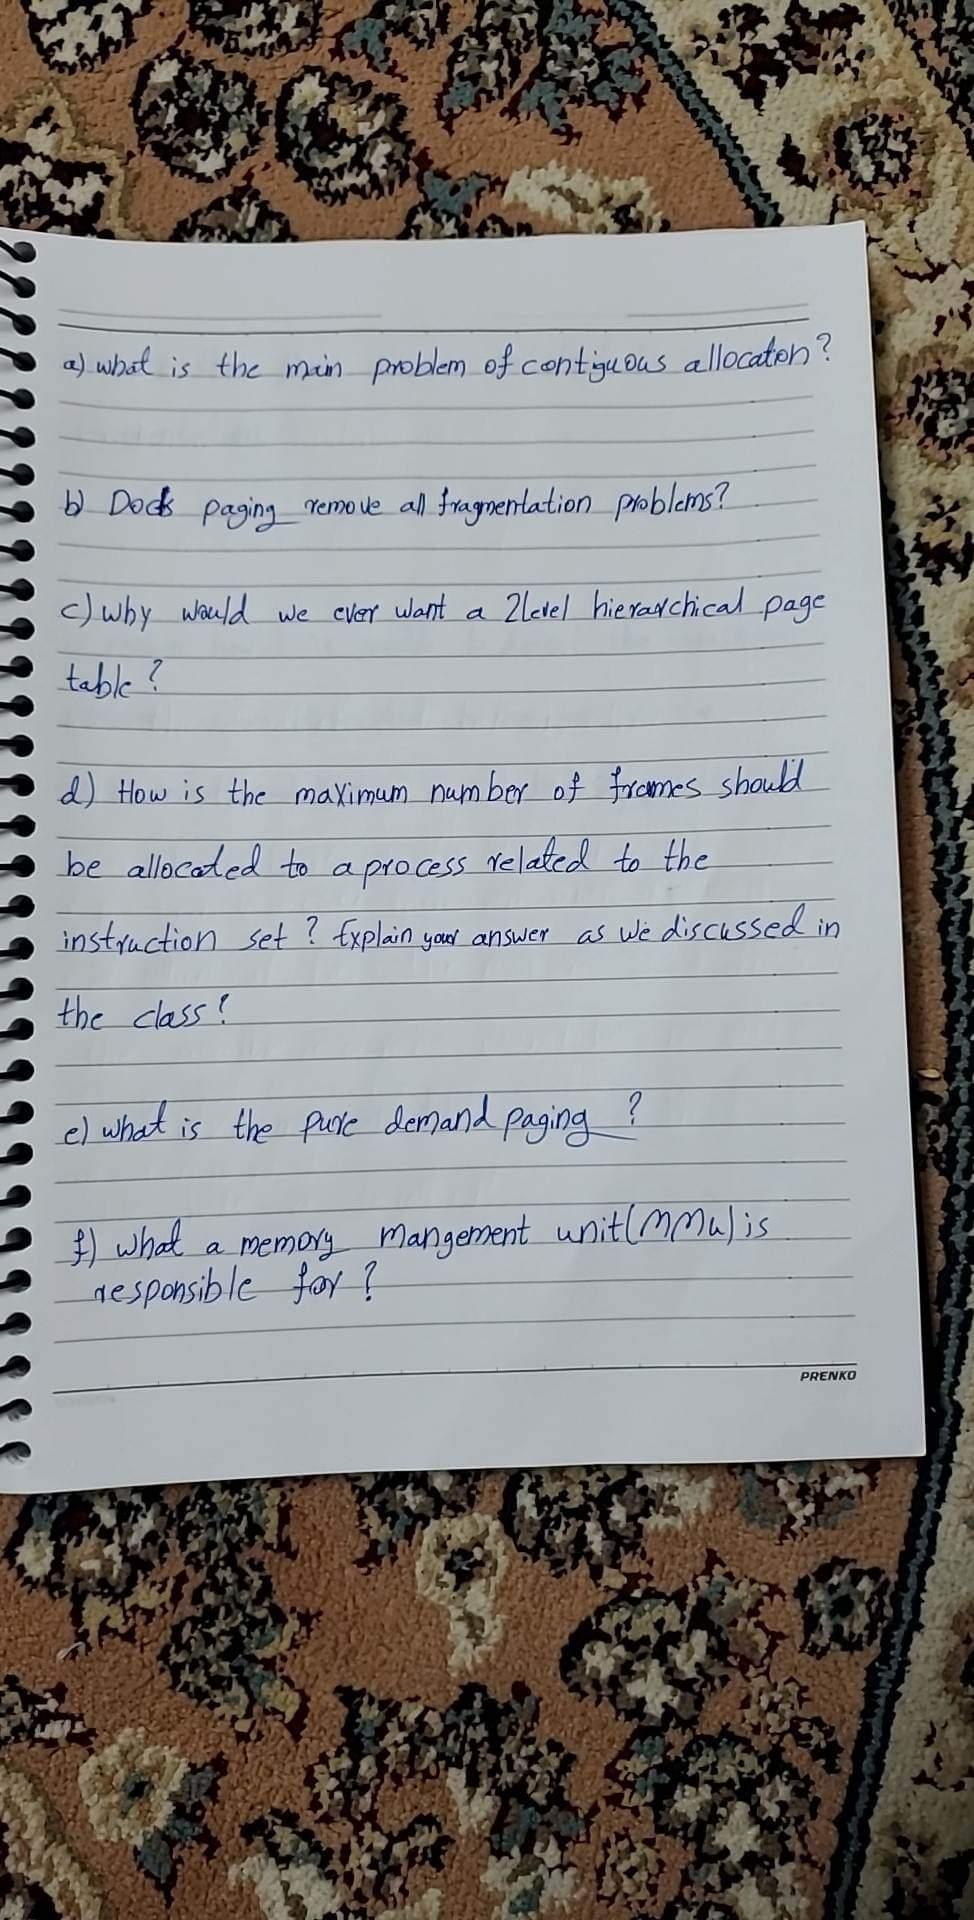 a) what is the main problem of contiguous allocation?
b) Does paging remove all fragmentation problems?
c) Why would we ever want a 2level hierarchical page
table?
d) How is the maximum number of frames should
be allocated to a process related to the
instruction set? Explain your answer as we discussed in
the class!
e) what is the pure demand paging?
f) what a memory mangement unit(MMU) is
responsible for?
PRENKO